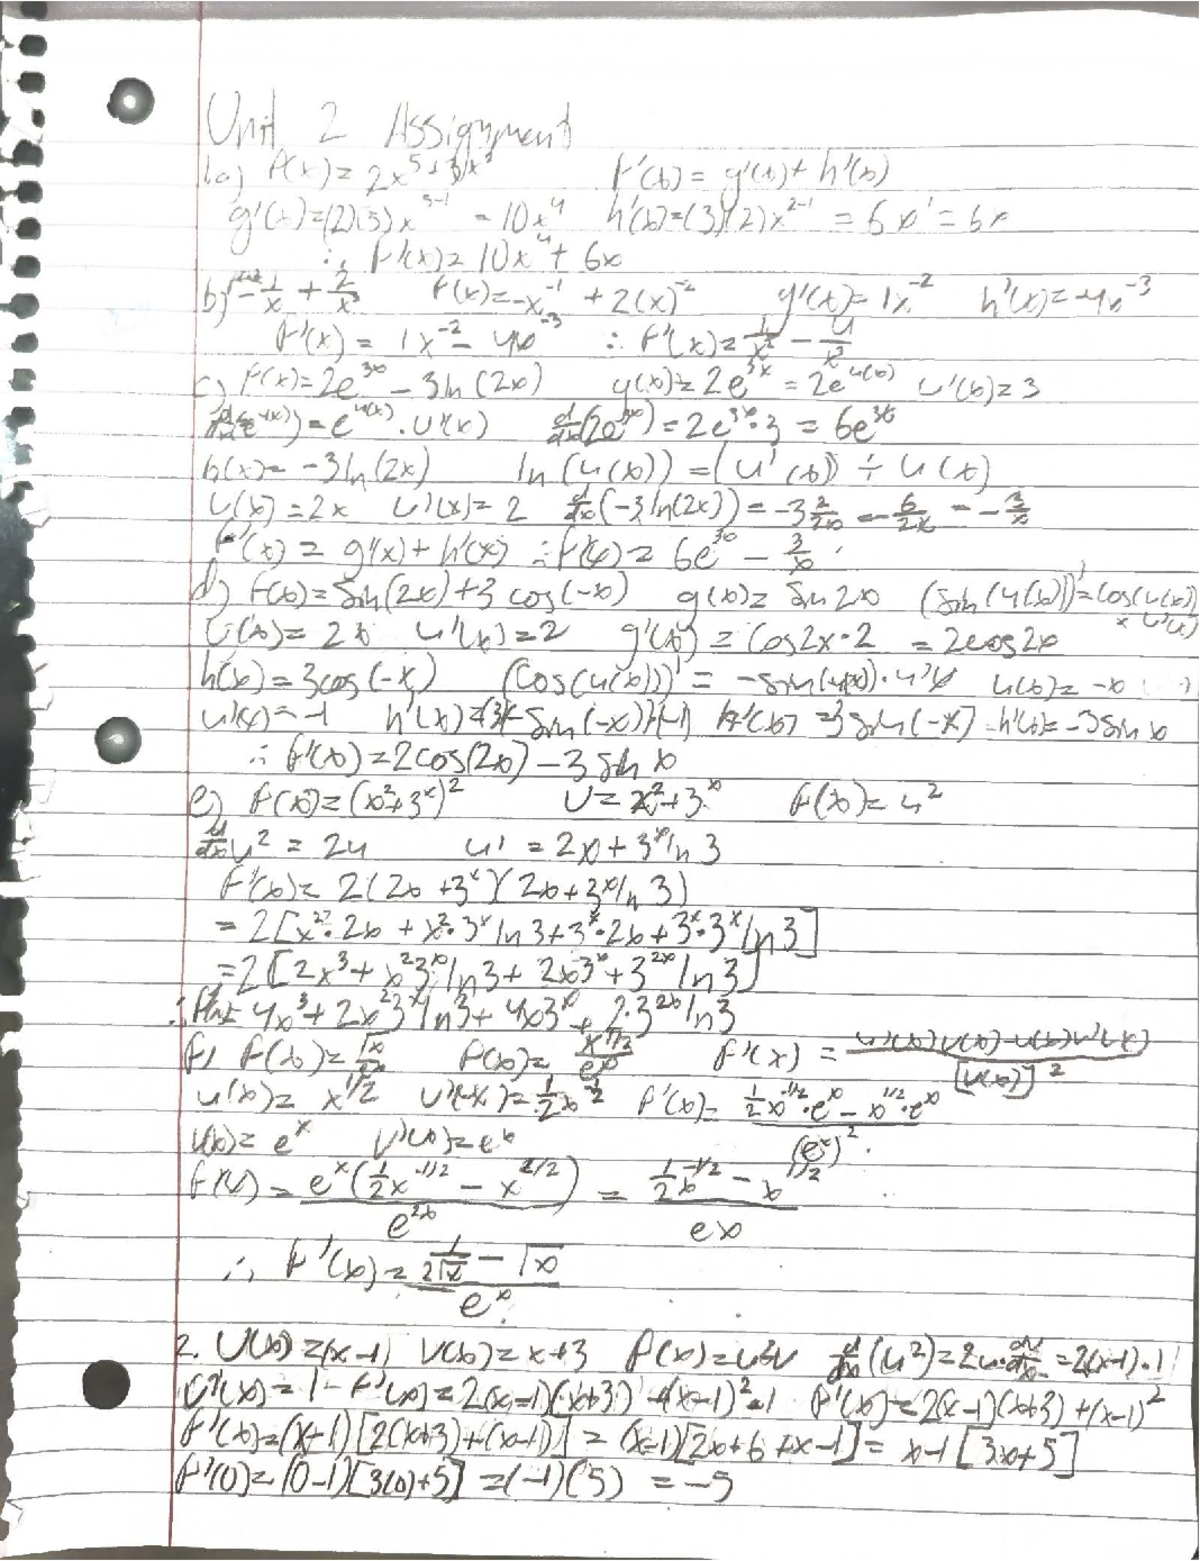 Unit 2 Assignment
1.a) f(x)= 2x^5+3x^2 f'(x) = g'(x)+h'(x)
g'(x)=(2)(5)x^{5-1} = 10x^4 h'(x)=(3)(2)x^{2-1} = 6x^1 = 6x
∴ f'(x)= 10x^4 + 6x
b) -1/x + 2/x^2 f(x)=-x^{-1} + 2(x)^{-2} g'(x)= 1x^{-2} h'(x)= -4x^{-3}
f'(x) = 1x^{-2} - 4x^{-3} ∴ f'(x)= 1/x^2 - 4/x^3
c) f(x)=2e^{3x} - 3ln(2x) g(x)= 2e^{3x} = 2e^{u(x)} u'(x)=3
d/dx(e^{u(x)})=e^{u(x)}·u'(x) d/dx(2e^{3x})=2e^{3x}·3 = 6e^{3x}
h(x)= -3ln(2x) ln(u(x))=(u'(x)) ÷ u(x)
u(x)=2x u'(x)=2 d/dx(-3ln(2x))=-3 2/2x = -6/2x = -3/x
f'(x) = g'(x)+h'(x) ∴ f'(x)= 6e^{3x} - 3/x
d) f(x)=sin(2x)+3cos(-x) g(x)= sin2x (sin(u(x)))'=cos(u(x))
× u'(x)
u(x)= 2x u'(x)=2 g'(x) = cos2x·2 = 2cos2x
h(x)=3cos(-x) (cos(u(x)))' = -sin(u(x))·u'x u(x)=-x
u'(x)=-1 h'(x)=(3)(-sin(-x))(-1) h'(x) =3sin(-x) h'(x)=-3sinx
∴ f'(x)=2cos(2x)-3sinx
e) f(x)=(x^2+3^x)^2 U=x^2+3^x f(x)=u^2
d/dx u^2 = 2u u' = 2x+3^x ln3
f'(x)= 2(2x+3^x)(2x+3^x ln3)
= 2[x^2·2x + x^2·3^x ln3+3^x·2x+3^x·3^x ln3]
=2[2x^3+x^2 3^x ln3+2x3^x+3^{2x} ln3]
∴ f'(x)= 4x^3+2x^2 3^x ln3+4x3^x+2·3^{2x} ln3
f) f(x)=√x/e^x f(x)= x^{1/2}/e^x f'(x) = u'(x)v(x)-u(x)v'(x)/[v(x)]^2
u(x)= x^{1/2} u'(x)=1/2 x^{-1/2} f'(x)= 1/2 x^{-1/2}·e^x - x^{1/2}·e^x/(e^x)^2
v(x)= e^x v'(x)=e^x
f'(x) = e^x(1/2 x^{-1/2} - x^{1/2})/e^{2x} = 1/2 x^{-1/2} - x^{1/2}/ex
∴ f'(x)= 1/2√x - √x/e^x
2. U(x)=(x-1) V(x)=x+3 f(x)=u^2v d/dx(u^2)=2u·du/dx=2(x-1)·1
V'(x)=1 f'(x)=2(x-1)(x+3)+(x-1)^2·1 f'(x)=2(x-1)(x+3)+(x-1)^2
f'(x)=(x-1)[2(x+3)+(x-1)] = (x-1)[2x+6+x-1]= x-1[3x+5]
f'(0)=(0-1)[3(0)+5] =(-1)(5) = -5